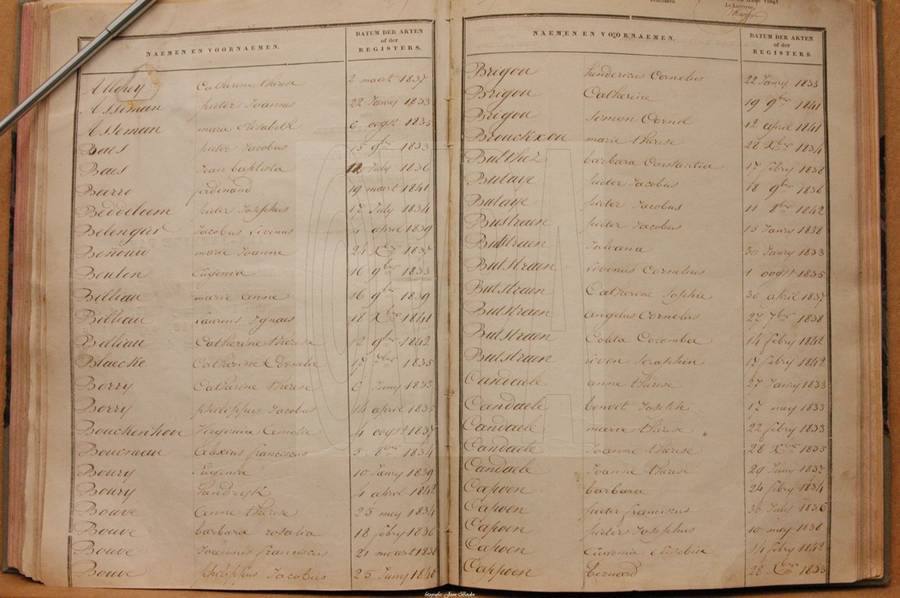 NAEMEN EN VOORNAEMEN.
DATUM DER AKTEN
of der
REGISTERS.
Catherine Thérese 2 maart 1837
Asseman pieter Joannus 22 Janry 1833
Asseman marie Elisabeth 6 oogst 1835
Baes pieter Jacobus 15 9ber 1833
Baes Jean baptista July 1836
Barre ferdinand 19 maart 1841
Beddeleem pieter Josephus 17 July 1834
Belengier Jacobus livinus 4 april 1839
marie Joanne
Beulen Eugenia 16 9ber 1833
Billiau marie anne 16 9ber 1839
Billiau laurens Ignaes 18 Xber 1841
Billiau Catherine therese 12 9ber 1842
Blancke Catharine Coralie 1835
Borry Catharine therese 6 Juny 1833
Borry philippus Jacobus 14 april 1835
Bouckenhove 4 oogst 1837
franciscus 1834
Boury Eugenia 10 Janry 1839
Boury 4 april 1842
Bouve anne therese 25 mey 1834
Bouve barbara rosalia 18 febry 1836
Bouve Joannus franciscus 21 maart 1838
Bouve philippus Jacobus 25 Juny 1840
NAEMEN EN VOORNAEMEN.
DATUM DER AKTEN
of der
REGISTERS.
Brigou henderieus Cornelus 22 Janry 1833
Brigou Catherine 19 9ber 1841
Brigou Simon Cornel 12 april 1841
marie therese 28 Xber 1834
barbara Constantia 17 febry 1838
Butaye pieter Jacobus 18 9ber 1836
Butaye pieter Jacobus 11 8ber 1842
Butstraen pieter Jacobus 15 Janry 1838
Butstraen Juliana 30 Janry 1833
Butstraen livinus Cornelius 1 oogst 1835
Butstraen Catherine Sophie 30 april 1837
Butstraen Angelus Cornelius 27 7ber 1838
Butstraen Colomba 14 febry 1842
Butstraen seraphin 17 febry 1842
Candaele anne therese 27 Janry 1833
Candaele benoit Joseph 17 mey 1833
Candaele marie therese 22 febry 1833
Candaele Joanne therese 28 Xber 1835
Candaele Joanne therese 29 Juny 1837
Capoen barbara 24 febry 1834
Capoen pieter franciscus 30 July 1836
Capoen pieter Josephus 10 mey 1838
Capoen 14 febry 1842
Cappoen bernard 28 Xber 1833